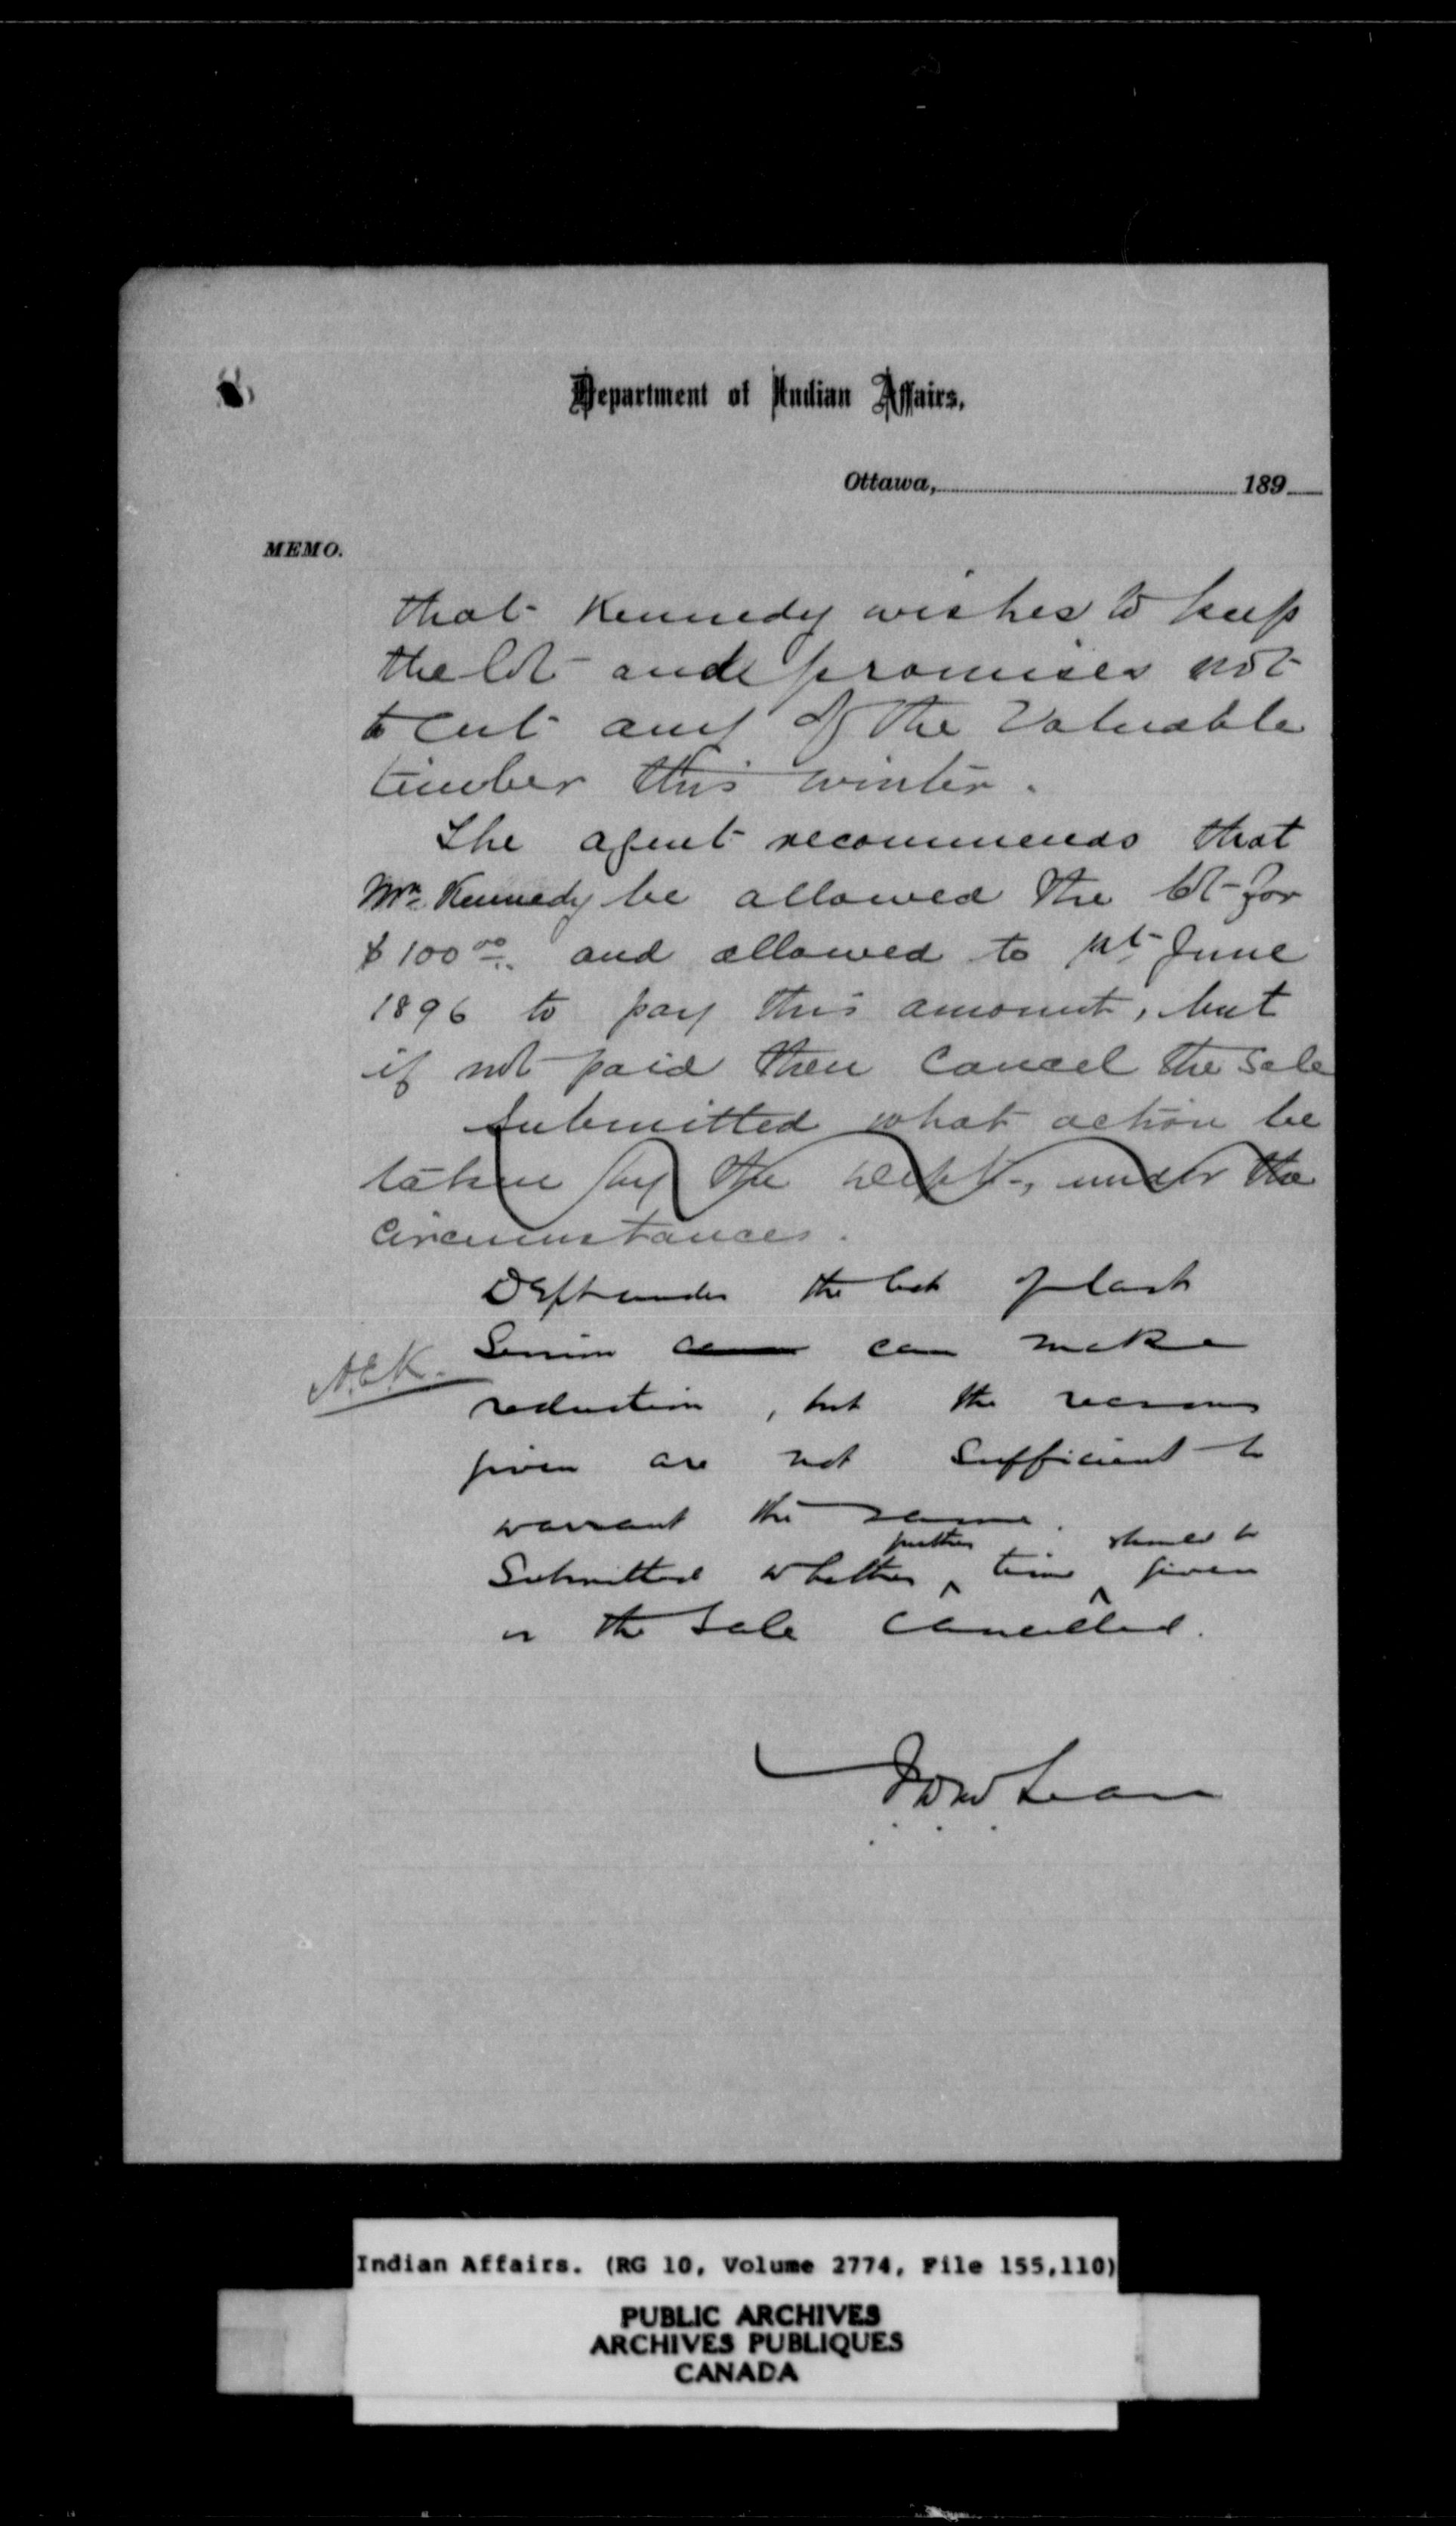 Department of Indian Affairs.
Ottawa, 189
MEMO.
that Kennedy wishes to keep
the lot and promises not
to cut any of the Valuable
timber this winter.
The agent recommends that
Mr. Kennedy be allowed the lot for
$100.00 and allowed to 1st June
1896 to pay this amount, but
if not paid then cancel the sale
Submitted what action be
taken by the Dept., under the
circumstances.
Dept under the act of last
Session can make
A.E.K.
reduction, but the reasons
given are not sufficient to
warrant the same.
further should be
Submitted whether time given
or the sale cancelled.
Indian Affairs. (RG 10, Volume 2774, File 155,110)
PUBLIC ARCHIVES
ARCHIVES PUBLIQUES
CANADA